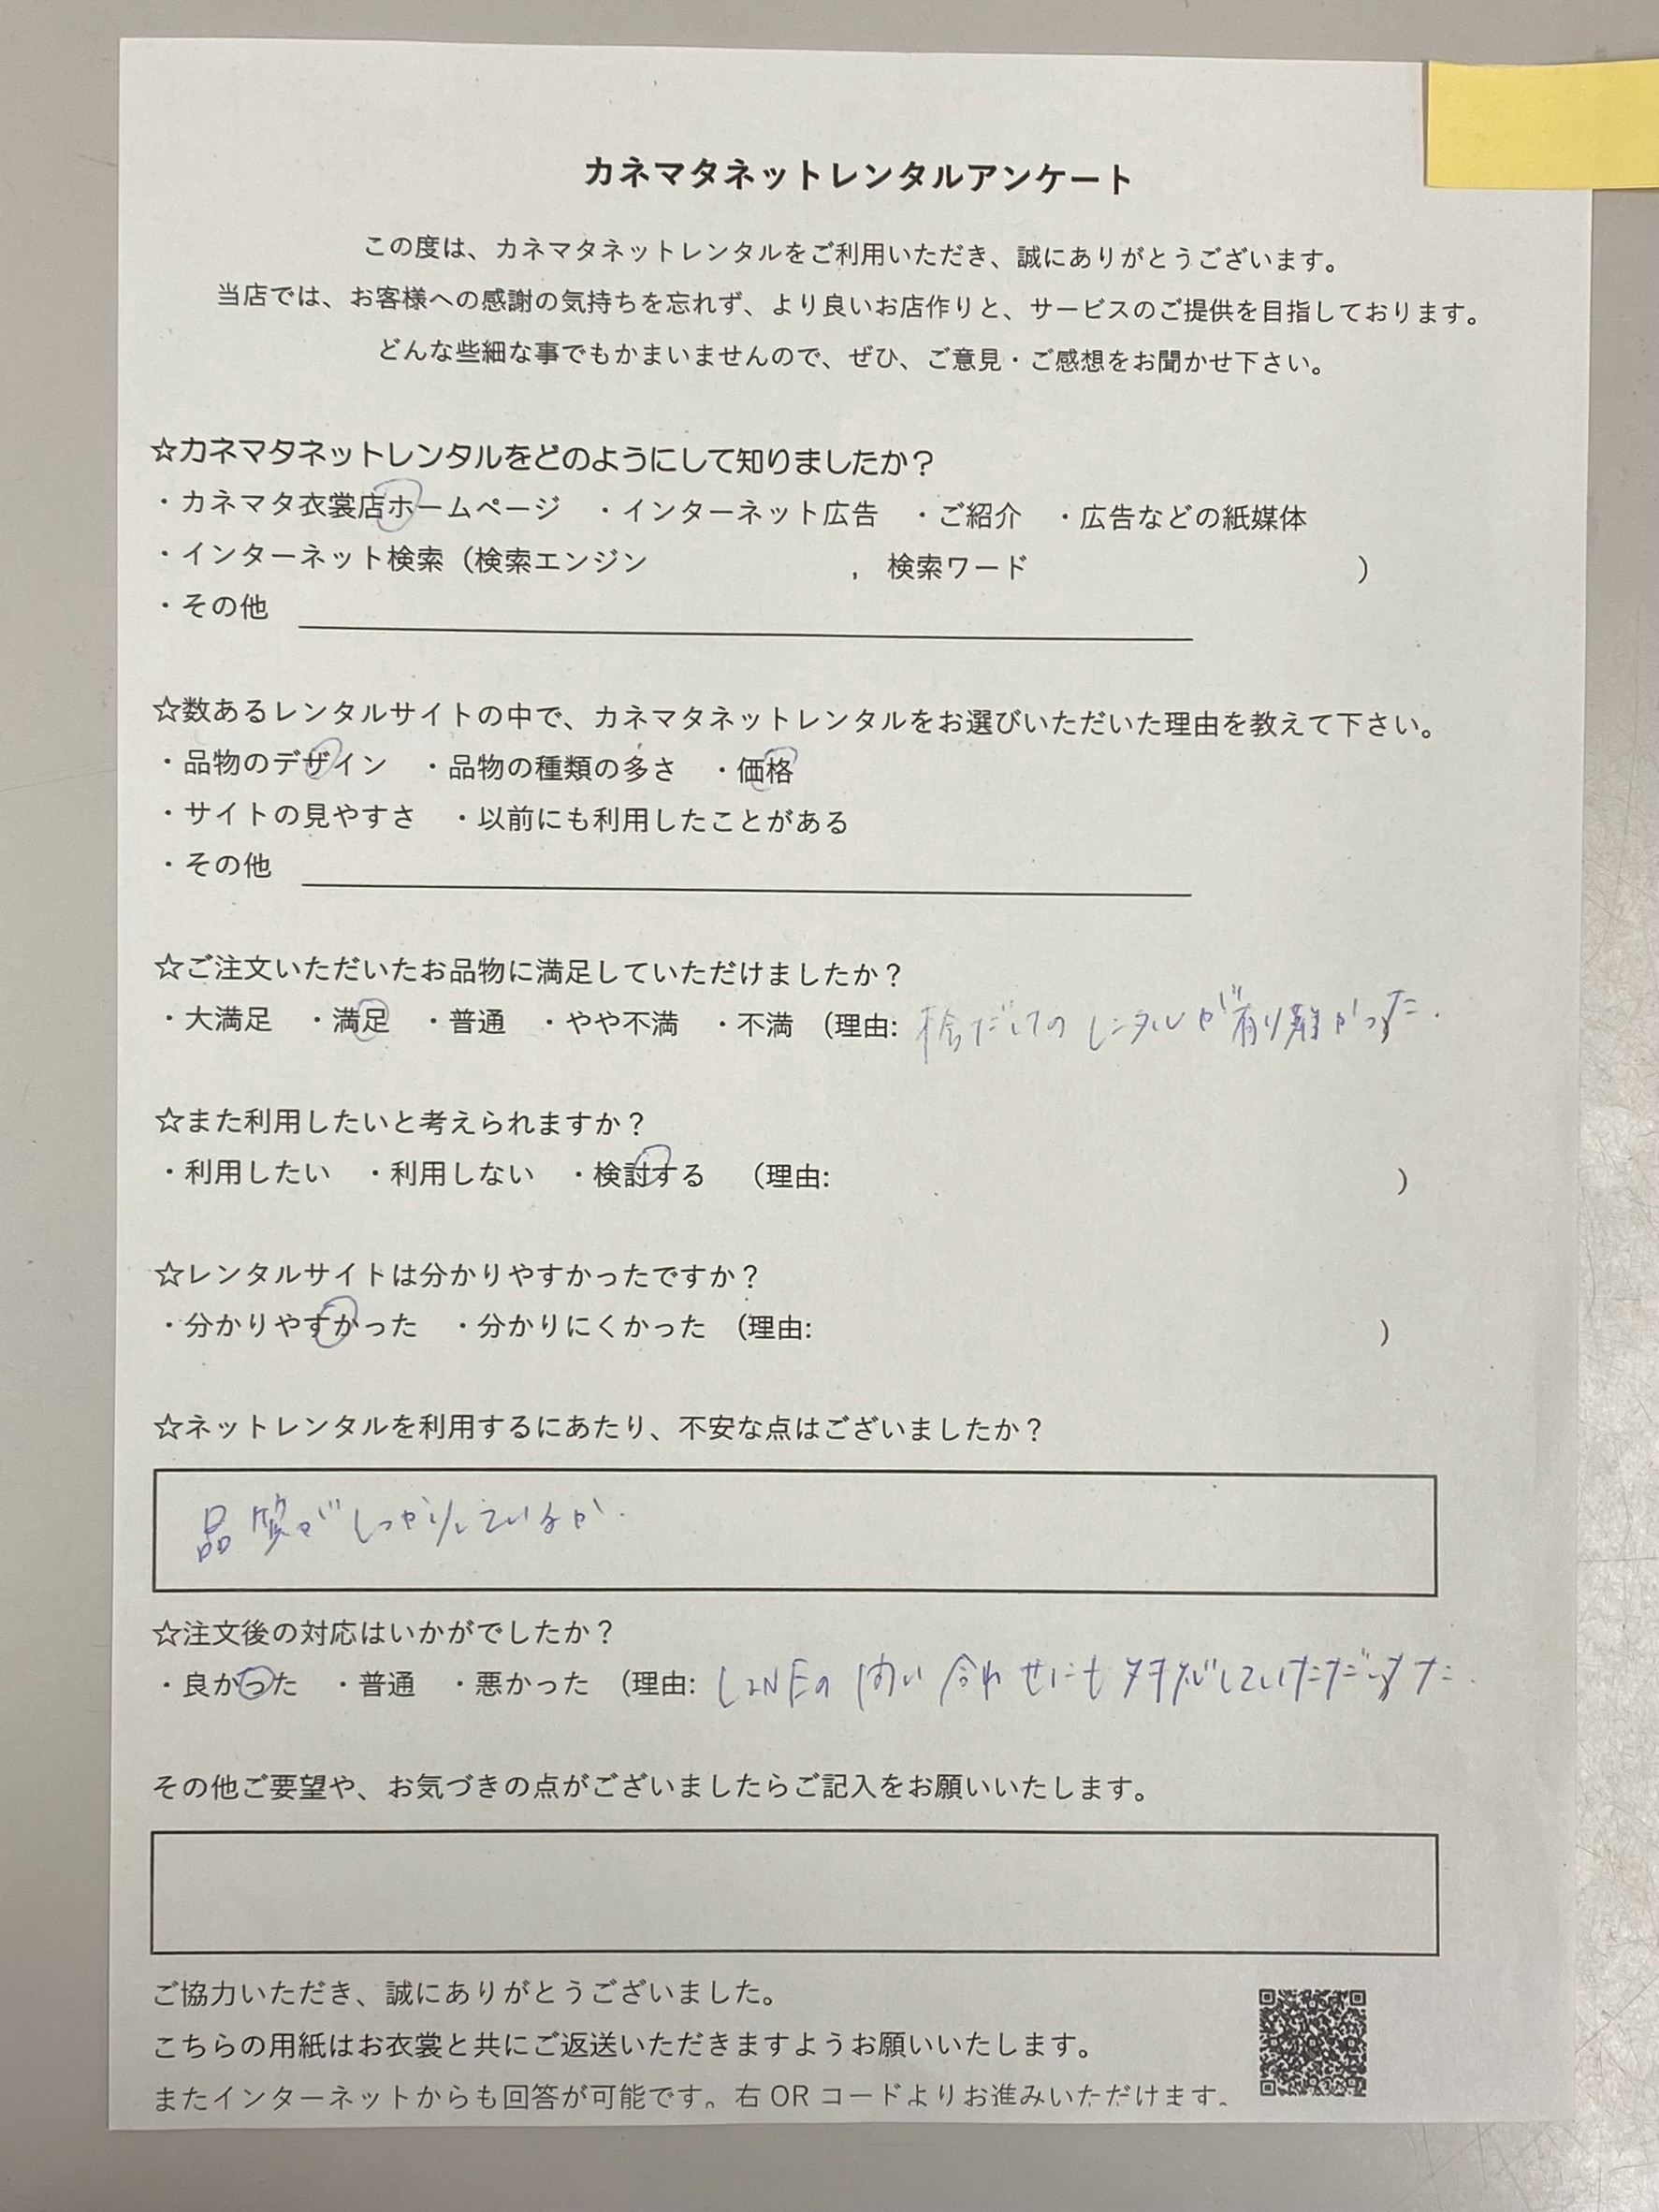 カネマタネットレンタルアンケート
この度は、カネマタネットレンタルをご利用いただき、誠にありがとうございます。
当店では、お客様への感謝の気持ちを忘れず、より良いお店作りと、サービスのご提供を目指しております。
どんな些細な事でもかまいませんので、ぜひ、ご意見・ご感想をお聞かせ下さい。
☆カネマタネットレンタルをどのようにして知りましたか？
・カネマタ衣裳店ホームページ ・インターネット広告 ・ご紹介 ・広告などの紙媒体
・インターネット検索（検索エンジン , 検索ワード ）
・その他
☆数あるレンタルサイトの中で、カネマタネットレンタルをお選びいただいた理由を教えて下さい。
・品物のデザイン ・品物の種類の多さ ・価格
・サイトの見やすさ ・以前にも利用したことがある
・その他
☆ご注文いただいたお品物に満足していただけましたか？
・大満足 ・満足 ・普通 ・やや不満 ・不満 （理由: だけの レンタルが有り難かった.
☆また利用したいと考えられますか？
・利用したい ・利用しない ・検討する （理由: ）
☆レンタルサイトは分かりやすかったですか？
・分かりやすかった ・分かりにくかった （理由: ）
☆ネットレンタルを利用するにあたり、不安な点はございましたか？
品質がしっかりしているか.
☆注文後の対応はいかがでしたか？
・良かった ・普通 ・悪かった （理由: LINEの問い合わせにも対応していただいた.
その他ご要望や、お気づきの点がございましたらご記入をお願いいたします。
ご協力いただき、誠にありがとうございました。
こちらの用紙はお衣裳と共にご返送いただきますようお願いいたします。
またインターネットからも回答が可能です。右QRコードよりお進みいただけます。